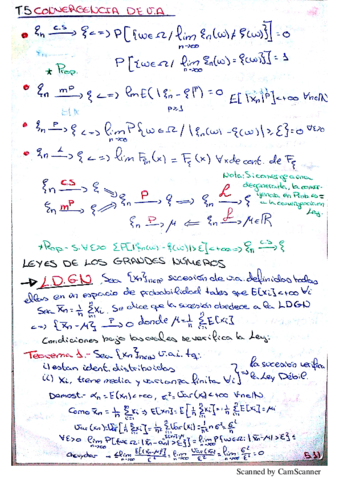 T5 CONVERGENCIA DE V.A.
• ξn c.s→ ξ <=> P[{ω∈Ω / lim n→∞ ξn(ω) ≠ ξ(ω)}] = 0
P[{ω∈Ω / lim n→∞ ξn(ω) = ξ(ω)}] = 1
* Prop.
• ξn mp→ ξ <=> lim E(|ξn - ξ|^p) = 0 E[|Xn|^p] < +∞ ∀n∈N
• ξn P→ ξ <=> lim P{ω∈Ω / |ξn(ω) - ξ(ω)| ≥ ε} = 0 ∀ε>0
• ξn L→ ξ <=> lim Fξn(x) = Fξ(x) ∀x de cont. de Fξ
Nota: Si converge a una
degenerada, la conver-
gencia en Prob es =
a la convergencia en
Ley.
ξn cs→ ξ
ξn mp→ ξ => ξn P→ ξ => ξn L→ ξ
ξn P→ μ <= ξn L→ μ∈R
*Prop - Si ∀ε>0 ΣP[|ξn(ω) - ξ(ω)|>ε] < +∞ => ξn c.s→ ξ
LEYES DE LOS GRANDES NÚMEROS
→ L.D.G.N Sea {Xn}n∈N sucesión de v.a. definidas todas
ellas en un espacio de probabilidad tales que E[Xi] < +∞ ∀i
Sea X̄n = 1/n Σ Xi. Se dice que la sucesión obedece a la LDGN
<=> {X̄n - μ} P→ 0 donde μ = 1/n Σ E[Xi]
Condiciones bajo las cuales se verifica la Ley:
Teorema 1.- Sea {Xn}n∈N v.a.i. tq:
i) estan ident. distribuidas
ii) Xi, tiene media y varianza finita ∀i
la sucesión verifica
la Ley Débil.
Demost: = E(Xn) < +∞, σ², Var(Xn) < +∞ ∀n∈N
Como X̄n = 1/n Σ Xi => E[X̄n] = E[1/n ΣXi] = 1/n Σ E[Xi] = μ
Var(X̄n) = Var[1/n ΣXi] = 1/n² Σ Var(Xi) =
5.1)
Scanned by CamScanner